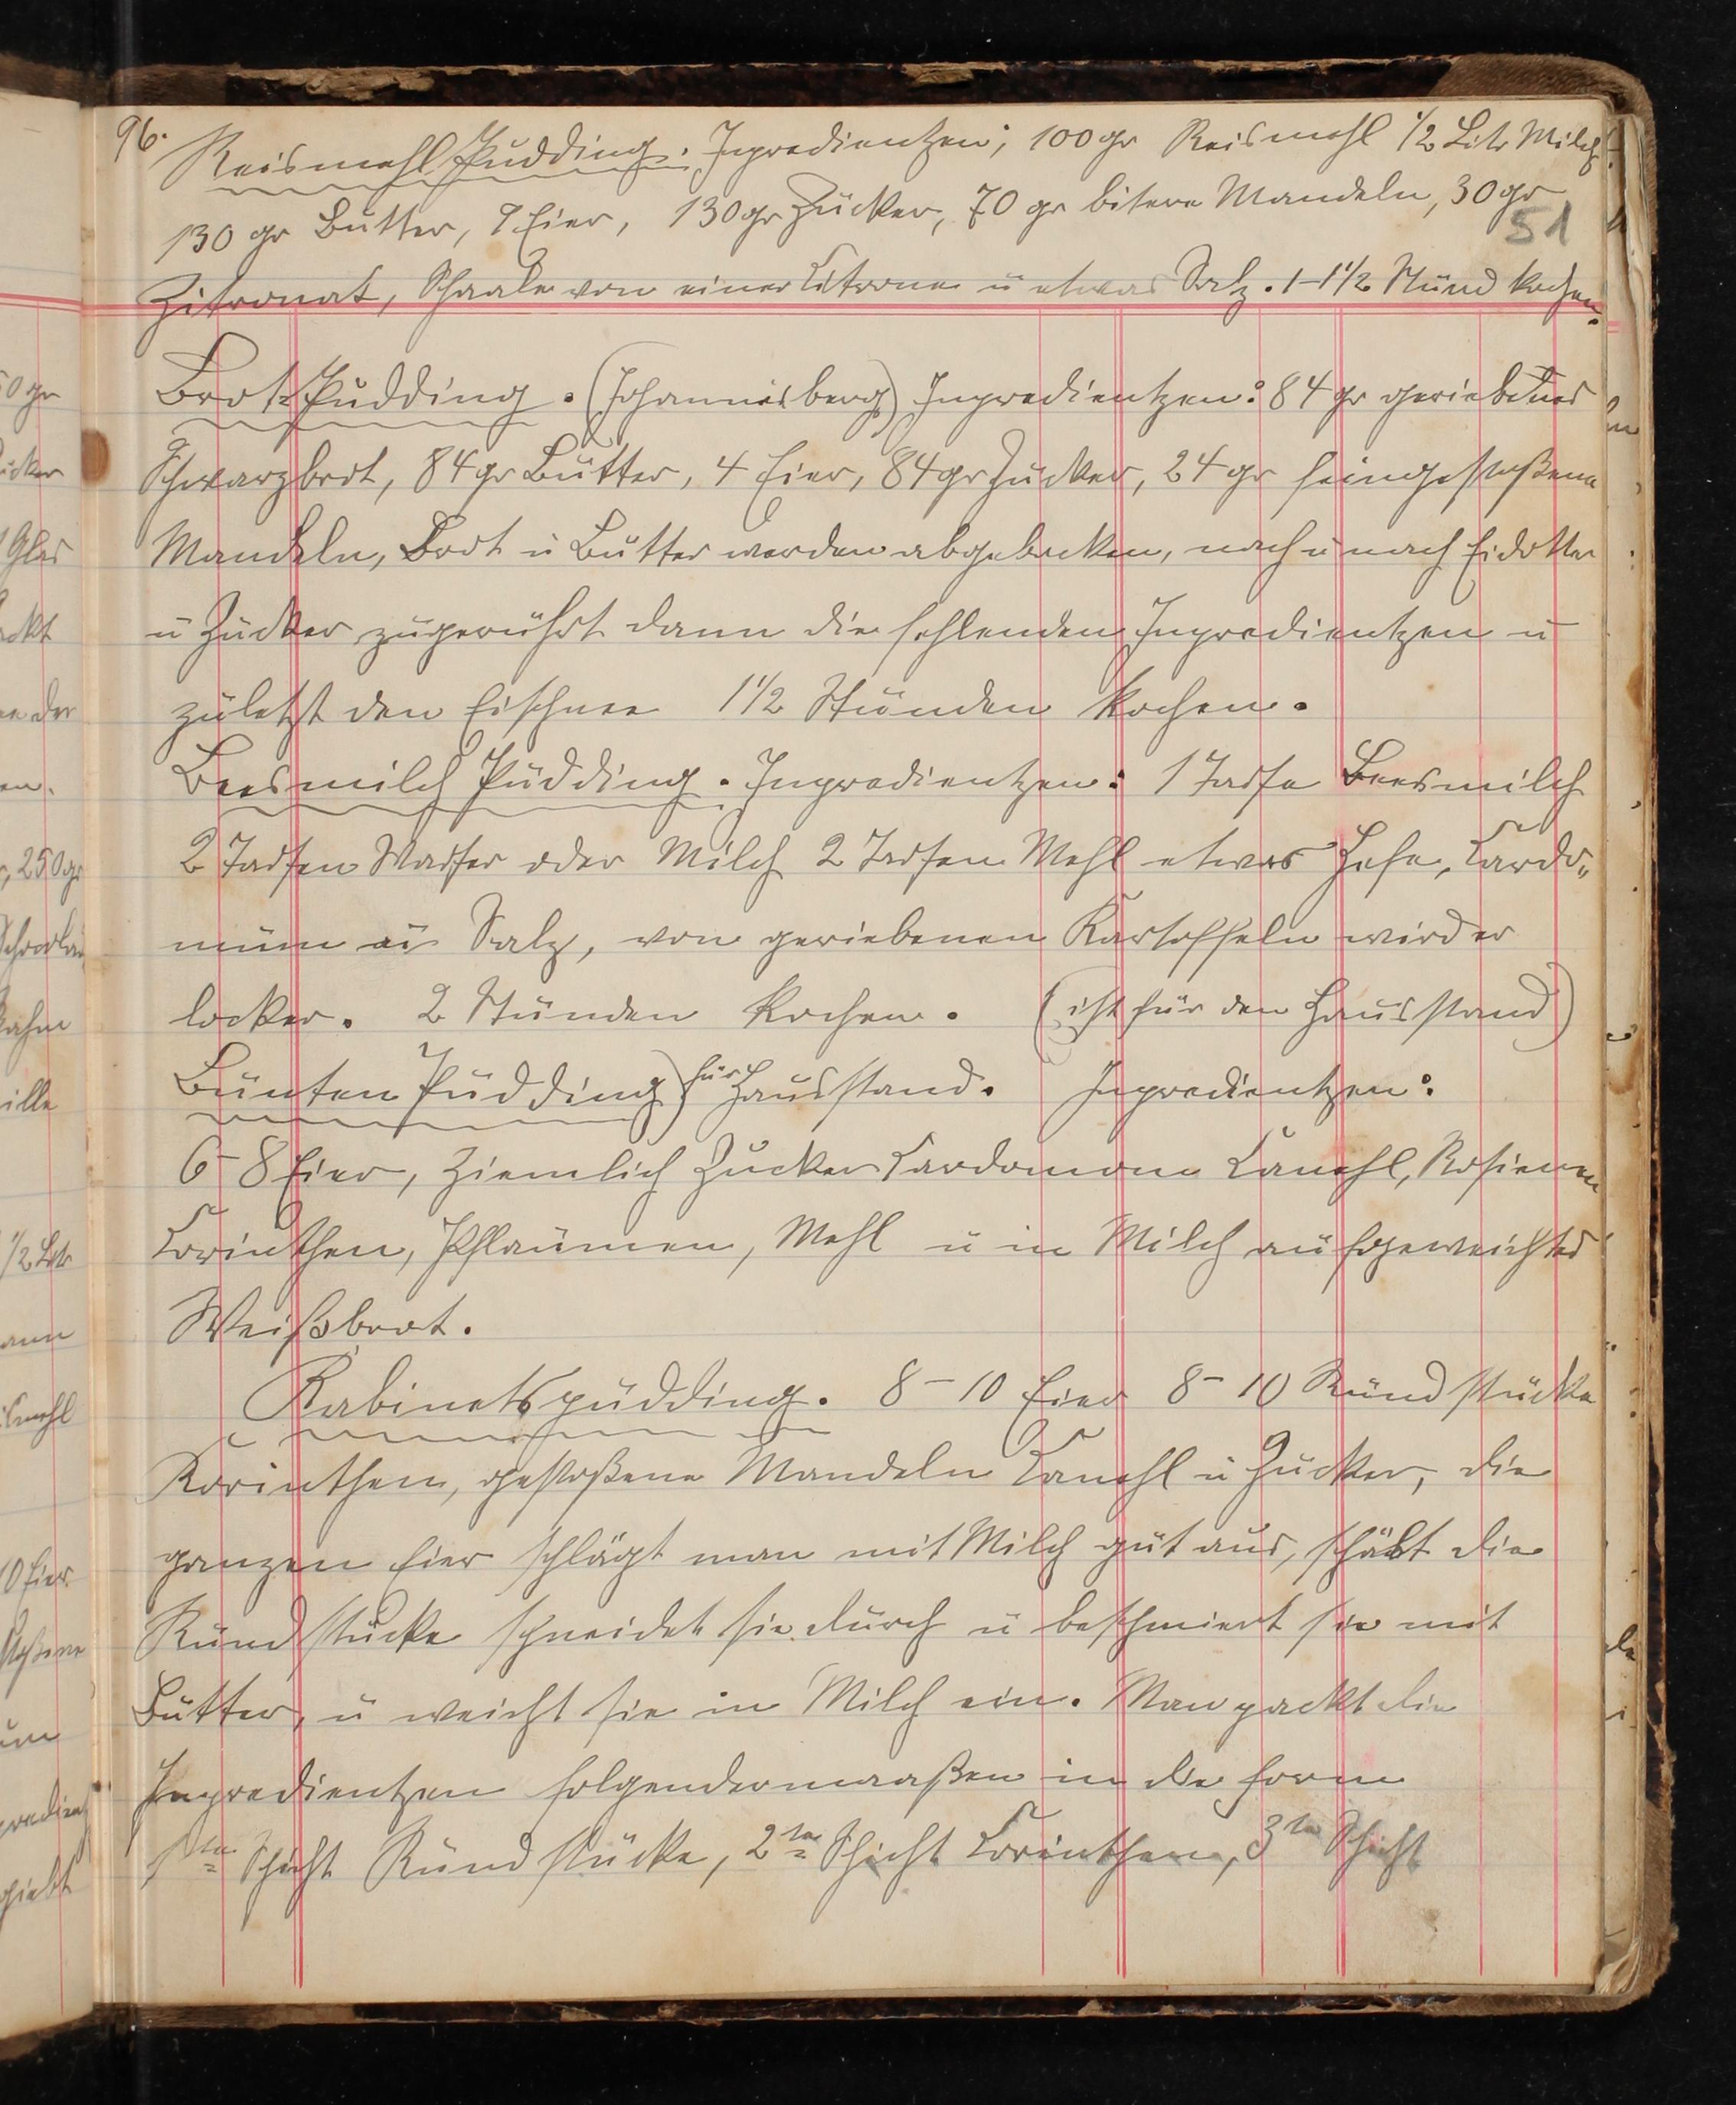 96. Reismehl Pudding. Ingredientzen; 100 gr Reismehl 1/2 Litr Milch
130 gr Butter, 9 Eier, 130 gr Zucker, 70 gr bitere Mandeln, 30 gr
51
Zitronat, Schaale von einer Citrone u etwas Salz. 1-1 1/2 Stund kochen.
Brot Pudding. (Johannisberg) Ingredientzen: 84 gr geriebenes
Schwarzbrot, 84 gr Butter, 4 Eier, 84 gr Zucker, 24 gr feingestoßene
Mandeln, Brot u Butter werden abgebacken, nach u nach Eidotter
u Zucker zugerührt dann die fehlenden Ingredientzen u
zuletzt den Eischnee 1 1/2 Stunden kochen.
Beesmilch Pudding. Ingredientzen: 1 Tasse Beesmilch
2 Tassen Wasser oder Milch 2 Tassen Mehl etwas Hefe, Cardo„
mum u Salz, von geriebenen Kartoffeln wird er
locker. 2 Stunden kochen. (ist für den Hausstand)
Bunten Pudding) für Hausstand. Ingredientzen:
6-8 Eier, ziemlich Zucker Cardomom Canehl, Rosienen
Corinthen, Pflaumen, Mehl u in Milch aufgeweichtes
Weißbrot.
Kabinetspudding. 8-10 Eier 8-10 Rundstücke
Korinthen, gestoßene Mandeln Canehl u Zucker, die
ganzen Eier schlägt man mit Milch gut aus, schabt die
Rundstücke schneidet sie durch u beschmiert sie mit
Butter, u weicht sie in Milch ein. Man packt die
Ingredientzen folgendermaaßen in die Form
1te Schicht Rundstücke, 2te Schicht Corinthen, 3te Schicht